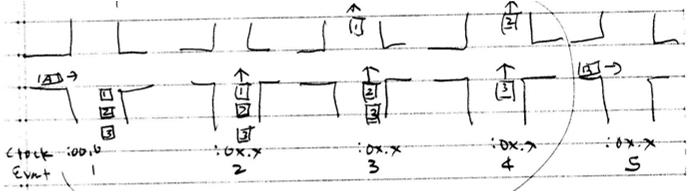 1
2
A 1 1 2 3 A
2 2 3
3 3
Clock :00.0 :0x.x :0x.x :0x.x :0x.x
Event 1 2 3 4 5